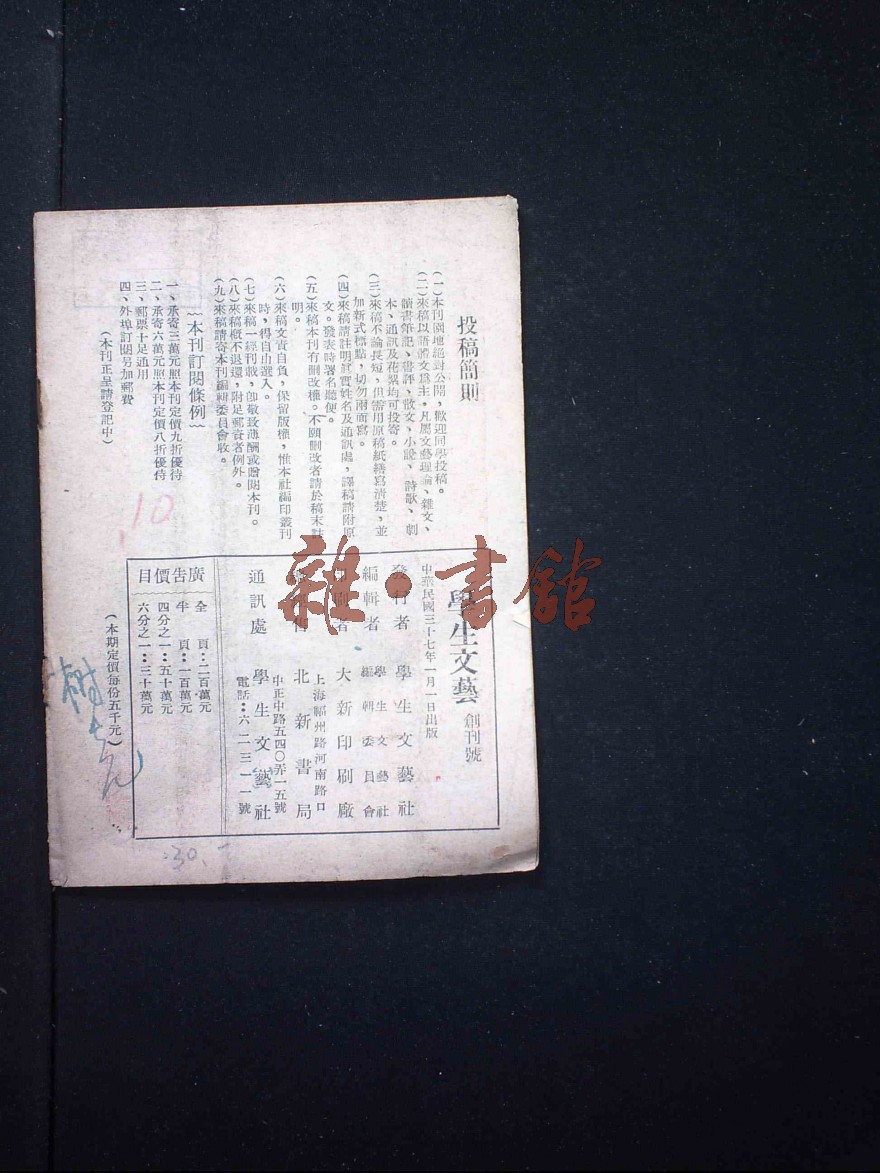 投稿簡則
(一)本刊園地絕對公開，歡迎同學投稿。
(二)來稿以語體文爲主，凡屬文藝理論、雜文、
讀書筆記、書評、散文、小說、詩歌、劇
本、通訊及花絮均可投寄。
(三)來稿不論長短，但需用原稿紙繕寫清楚，並
加新式標點，切勿兩面寫。
(四)來稿請註明眞實姓名及通訊處，譯稿請附原
文。發表時署名聽便。
(五)來稿本刊有刪改權。不願刪改者請於稿末註
明。
(六)來稿文責自負，保留版權，惟本社編印叢刊
時，得自由選入。
(七)來稿一經刊載，卽敬致薄酬或贈閱本刊。
(八)來稿槪不退還，附足郵資者例外。
(九)來稿請寄本刊編輯委員會收。
本刊訂閱條例
一、承寄三萬元照本刊定價九折優待
二、承寄六萬元照本刊定價八折優待
三、郵票十足通用
四、外埠訂閱另加郵費
(本刊正呈請登記中)
學生文藝 創刊號
中華民國三十七年一月一日出版
發行者 學生文藝社
編輯者 學生文藝社
編輯委員會
印刷者 大新印刷廠
上海福州路河南路口
北新書局
中正中路五四〇弄一五號
通訊處 學生文藝社
電話：六二三一一號
廣告價目
全 頁：二百萬元
半 頁：一百萬元
四分之一：五十萬元
六分之一：三十萬元
(本期定價每份五千元)
10
30.-
雜·書館